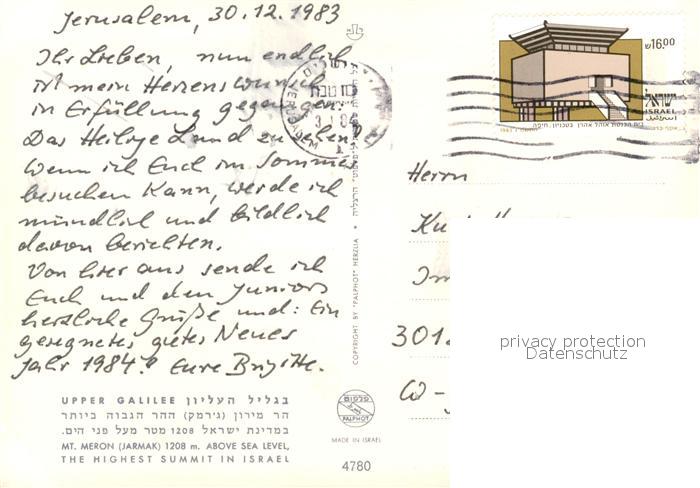 Jerusalem, 30.12.1983
Ihr Lieben, nun endlich
ist mein Herzenswunsch
in Erfüllung gegangen:
Das Heilige Land zu sehen!
Wenn ich Euch im Sommer
besuchen kann, werde ich
mündlich und bildlich
davon berichten.
Von hier aus sende ich
Euch und den Juniors
herzliche Grüße und: Ein
gesegnetes gutes Neues
Jahr 1984! Eure Brigitte.
UPPER GALILEE בגליל העליון
הר מירון (ג'רמק) ההר הגבוה ביותר
במדינת ישראל 1208 מטר מעל פני הים.
MT. MERON (JARMAK) 1208 m. ABOVE SEA LEVEL,
THE HIGHEST SUMMIT IN ISRAEL
COPYRIGHT BY "PALPHOT" HERZLIA • הרצליה
פלפוט
PALPHOT
MADE IN ISRAEL
4780
JERUSALEM
ש16.00
ישראל
ISRAEL
اسرائيل
בית הכנסת אוהל אהרן בטכניון, חיפה
1983
Herrn
301
W-
privacy protection
Datenschutz